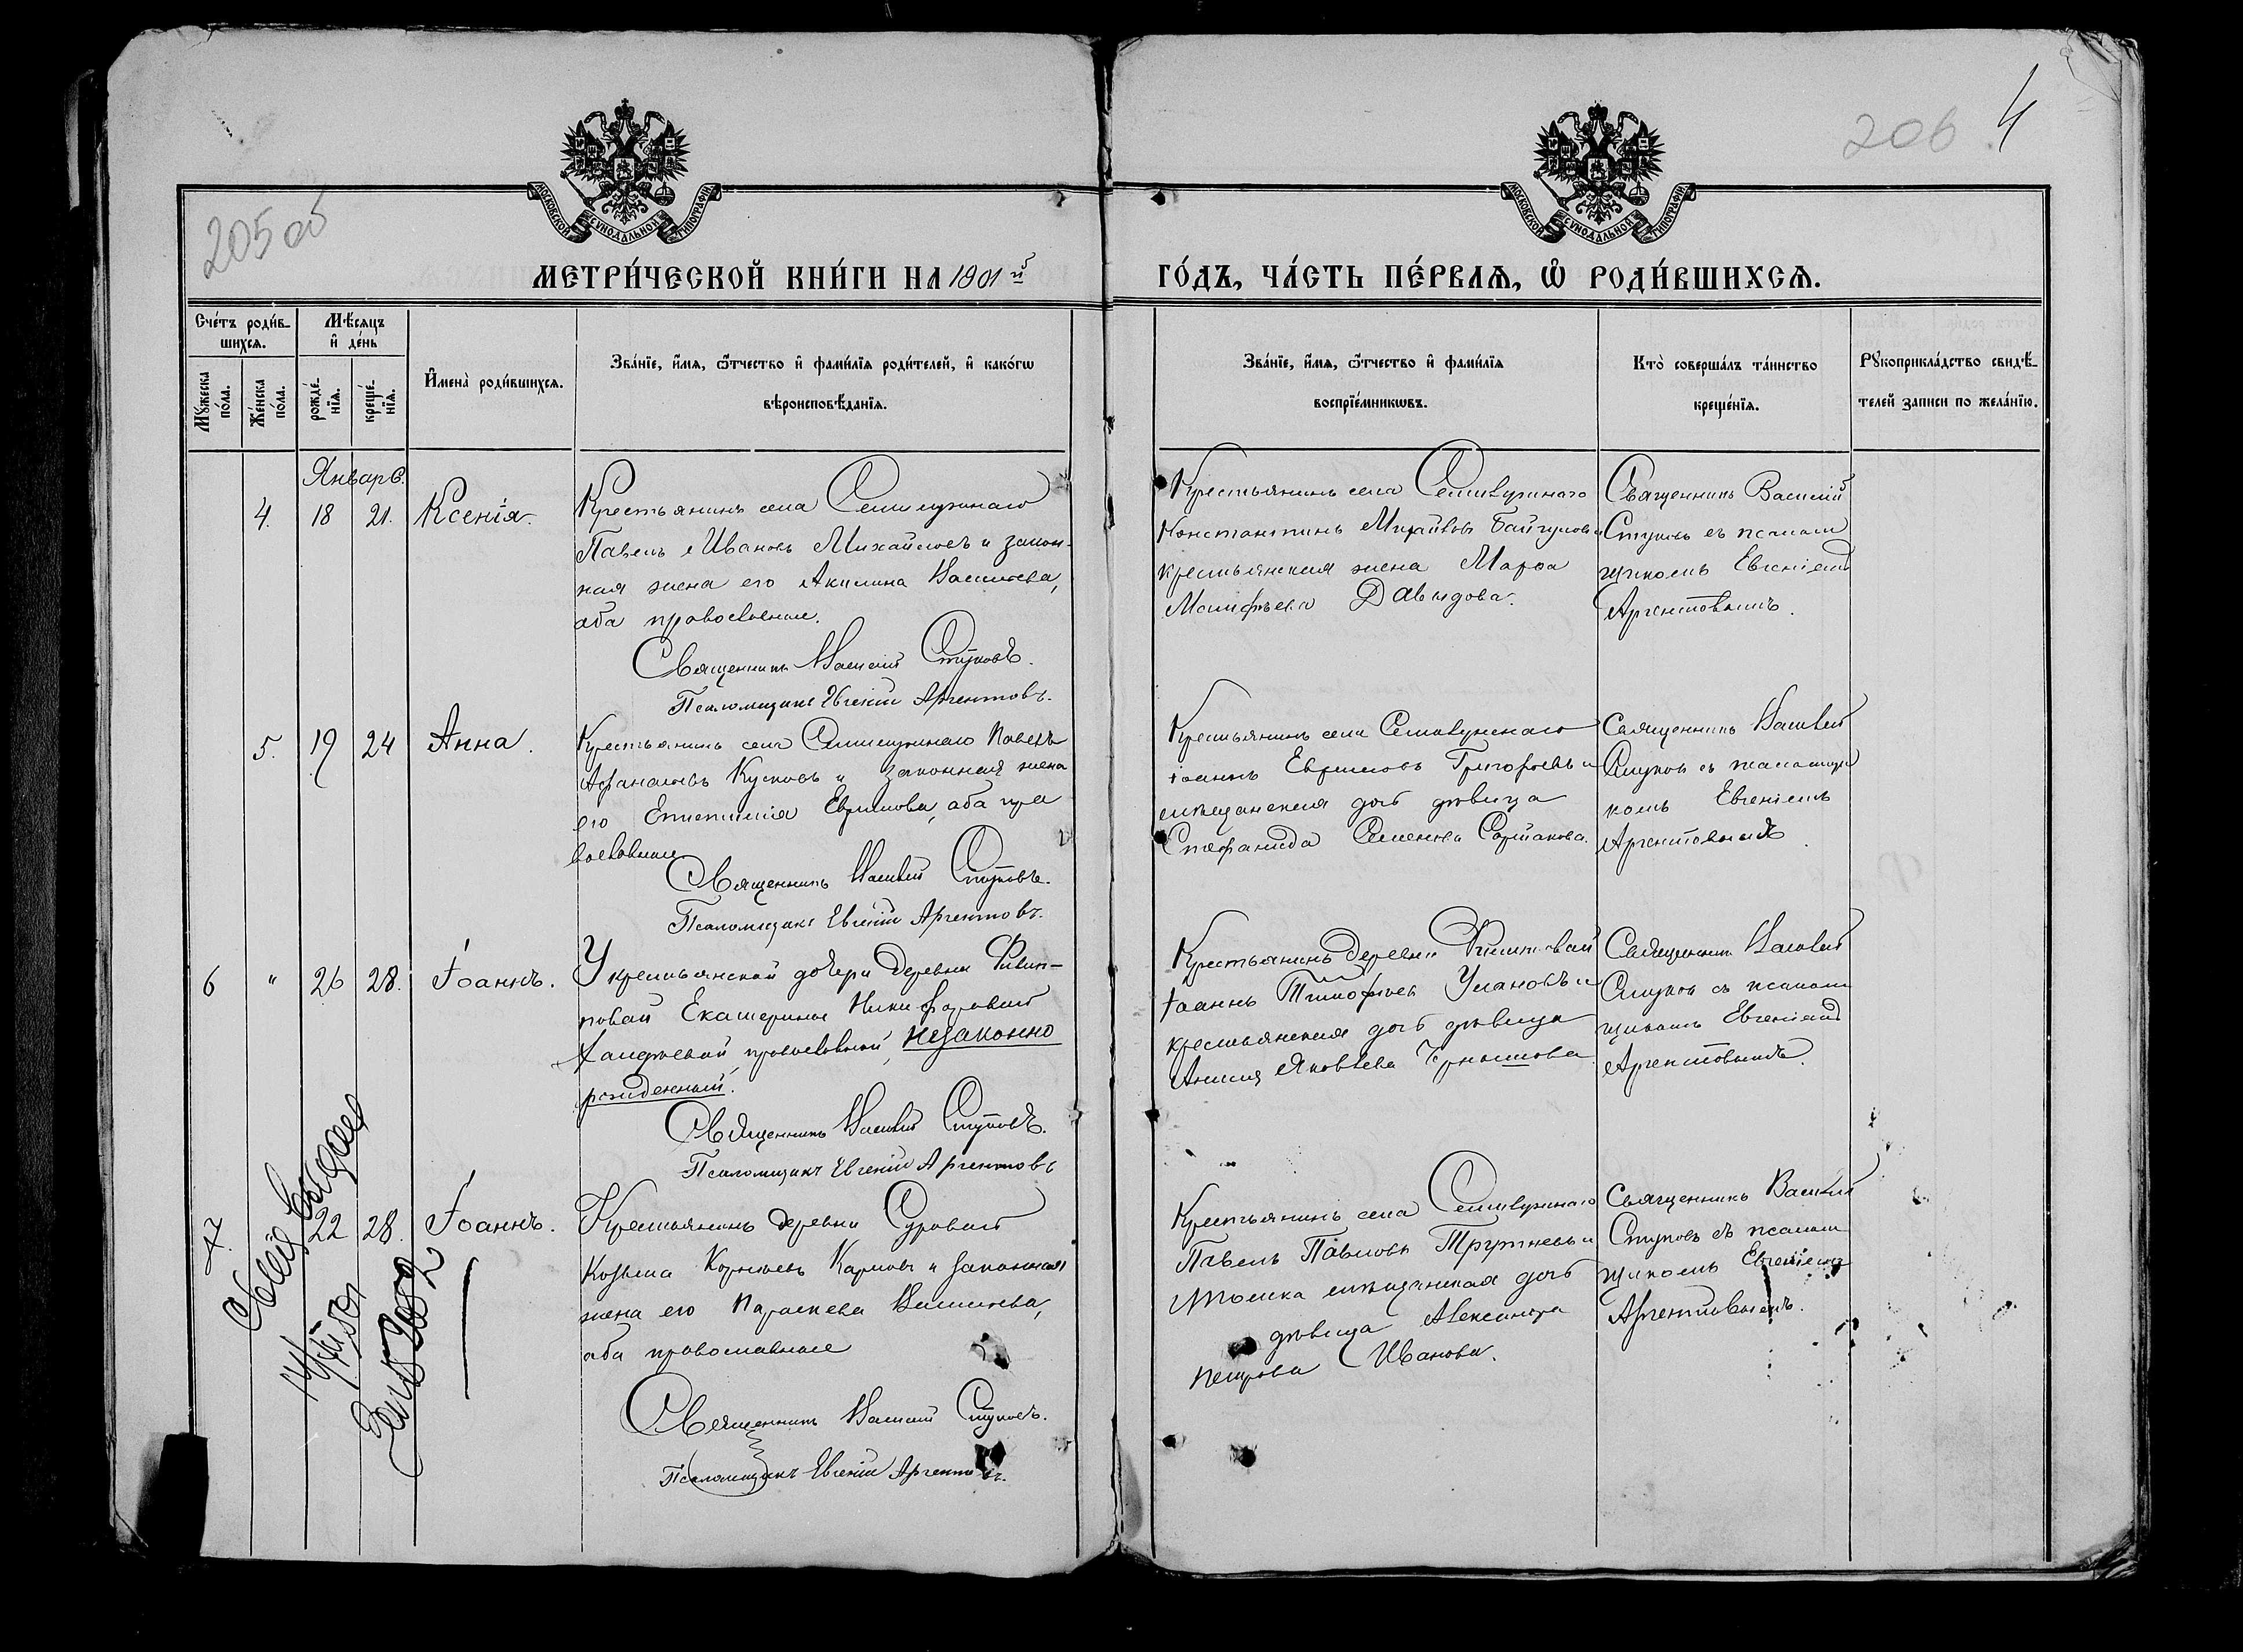 206 4
205 об
МОСКОВСКОЙ СѴНОДАЛЬНОЙ ТИПОГРАФІИ
МОСКОВСКОЙ СѴНОДАЛЬНОЙ ТИПОГРАФІИ
МЕТРИ́ЧЕСКОЙ КНИ́ГИ НА 1901й
ГО́ДЪ, ЧА́СТЬ ПЕ́РВАѦ, Ѡ҆ РОДИ́ВШИХСѦ.
Сче́тъ роди́в-
шихсѧ.
Мꙋ́жеска
по́ла.
Же́нска
по́ла.
Мѣ́сѧцъ
и҆ де́нь
рожде́-
нїѧ.
креще́-
нїѧ.
И҆мена̀ роди́вшихсѧ.
Зва́нїе, и҆́мѧ, ѻ҆́тчество и҆ фами́лїѧ роди́телей, и҆ како́гѡ
вѣроисповѣ́данїѧ.
Зва́нїе, и҆́мѧ, ѻ҆́тчество и҆ фами́лїѧ
воспрїе́мникѡвъ.
Кто̀ соверша́лъ та́инство
креще́нїѧ.
Рꙋкоприкла́дство свидѣ́-
телей записи по жела́нїю.
Январь.
4. 18 21. Ксенія.
Крестьянинъ села Семилужнаго
Павелъ Ивановъ Михайловъ и закон-
ная жена его Акилина Васильева,
оба православные.
Священникъ Василій Стуковъ.
Псаломщикъ Евгеній Аргентовъ.
Крестьянинъ села Семилужнаго
Константинъ Михайловъ Байгуловъ и
крестьянская жена Марфа
Давыдова.
Священникъ Василій
Стуковъ съ псалом
щикомъ Евгеніемъ
Аргентовымъ.
5. 19 24 Анна.
Крестьянинъ села Семилужнаго Павелъ
Афанасьевъ Кусковъ и законная жена
его Ефимова, оба пра
вославные
Священникъ Василій Стуковъ.
Псаломщикъ Евгеній Аргентовъ.
Крестьянинъ села Семилужнаго
Іоаннъ Ефимовъ Григорьевъ и
мѣщанская дочь дѣвица
Стефанида Семенова
Священникъ Василій
Стуковъ съ псаломщи
комъ Евгеніемъ
Аргентовымъ.
6 " 26 28. Іоаннъ.
У крестьянской дочери деревни Филип-
повой Екатерины Никифоровой
православной, незаконно
рожденный.
Священникъ Василій Стуковъ.
Псаломщикъ Евгеній Аргентовъ
Крестьянинъ деревни Филипповой
Іоаннъ Тимофѣевъ Улановъ и
крестьянская дочь дѣвица
Анисія Яковлева Чернышова
Священникъ Василій
Стуковъ съ псалом
щикомъ Евгеніемъ
Аргентовымъ.
7. 22 28. Іоаннъ.
Крестьянинъ деревни Суровой
Козьма Корнѣевъ Карповъ и законная
жена его Параскева Васильева,
оба православные
Священникъ Василій Стуковъ.
Псаломщикъ Евгеній Аргентовъ.
Крестьянинъ села Семилужнаго
Павелъ Павловъ и
Томска мѣщанская дочь
дѣвица Александра
Петрова Иванова.
Священникъ Василій
Стуковъ съ псалом
щикомъ Евгеніемъ
Аргентовымъ.